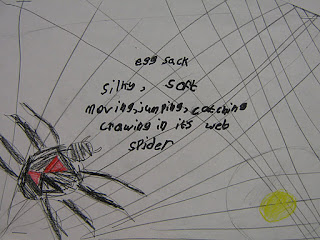 egg sack
silky, soft
moving, jumping, catching
crawing in its web
spider